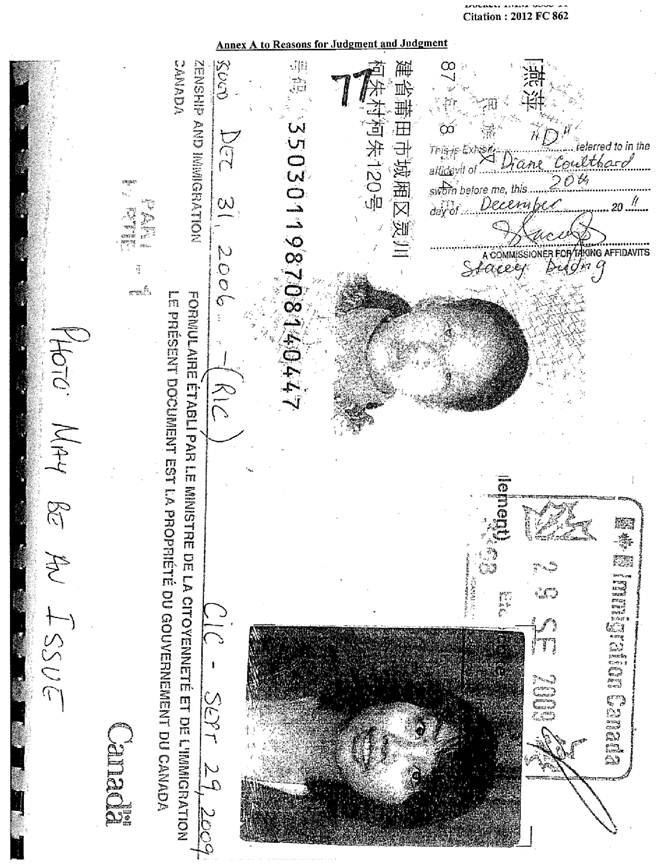 Citation : 2012 FC 862
Annex A to Reasons for Judgment and Judgment
"D"
This is Exhibit referred to in the
affidavit of Diane Coulthard
sworn before me, this 20th
day of December 20 11
A COMMISSIONER FOR TAKING AFFIDAVITS
燕萍
民族 汉
87 年 8 14
建省莆田市城厢区灵川
柯朱村柯朱120号
77
号码 350301198708140447
Immigration Canada
29 SE 2009
lement)
DEC 31, 2006 - (RIC) CIC - SEPT 29, 2009
ZENSHIP AND IMMIGRATION
CANADA
FORMULAIRE ÉTABLI PAR LE MINISTRE DE LA CITOYENNETÉ ET DE L'IMMIGRATION
LE PRÉSENT DOCUMENT EST LA PROPRIÉTÉ DU GOUVERNEMENT DU CANADA
PART - 1
Canada
PHOTO MAY BE AN ISSUE